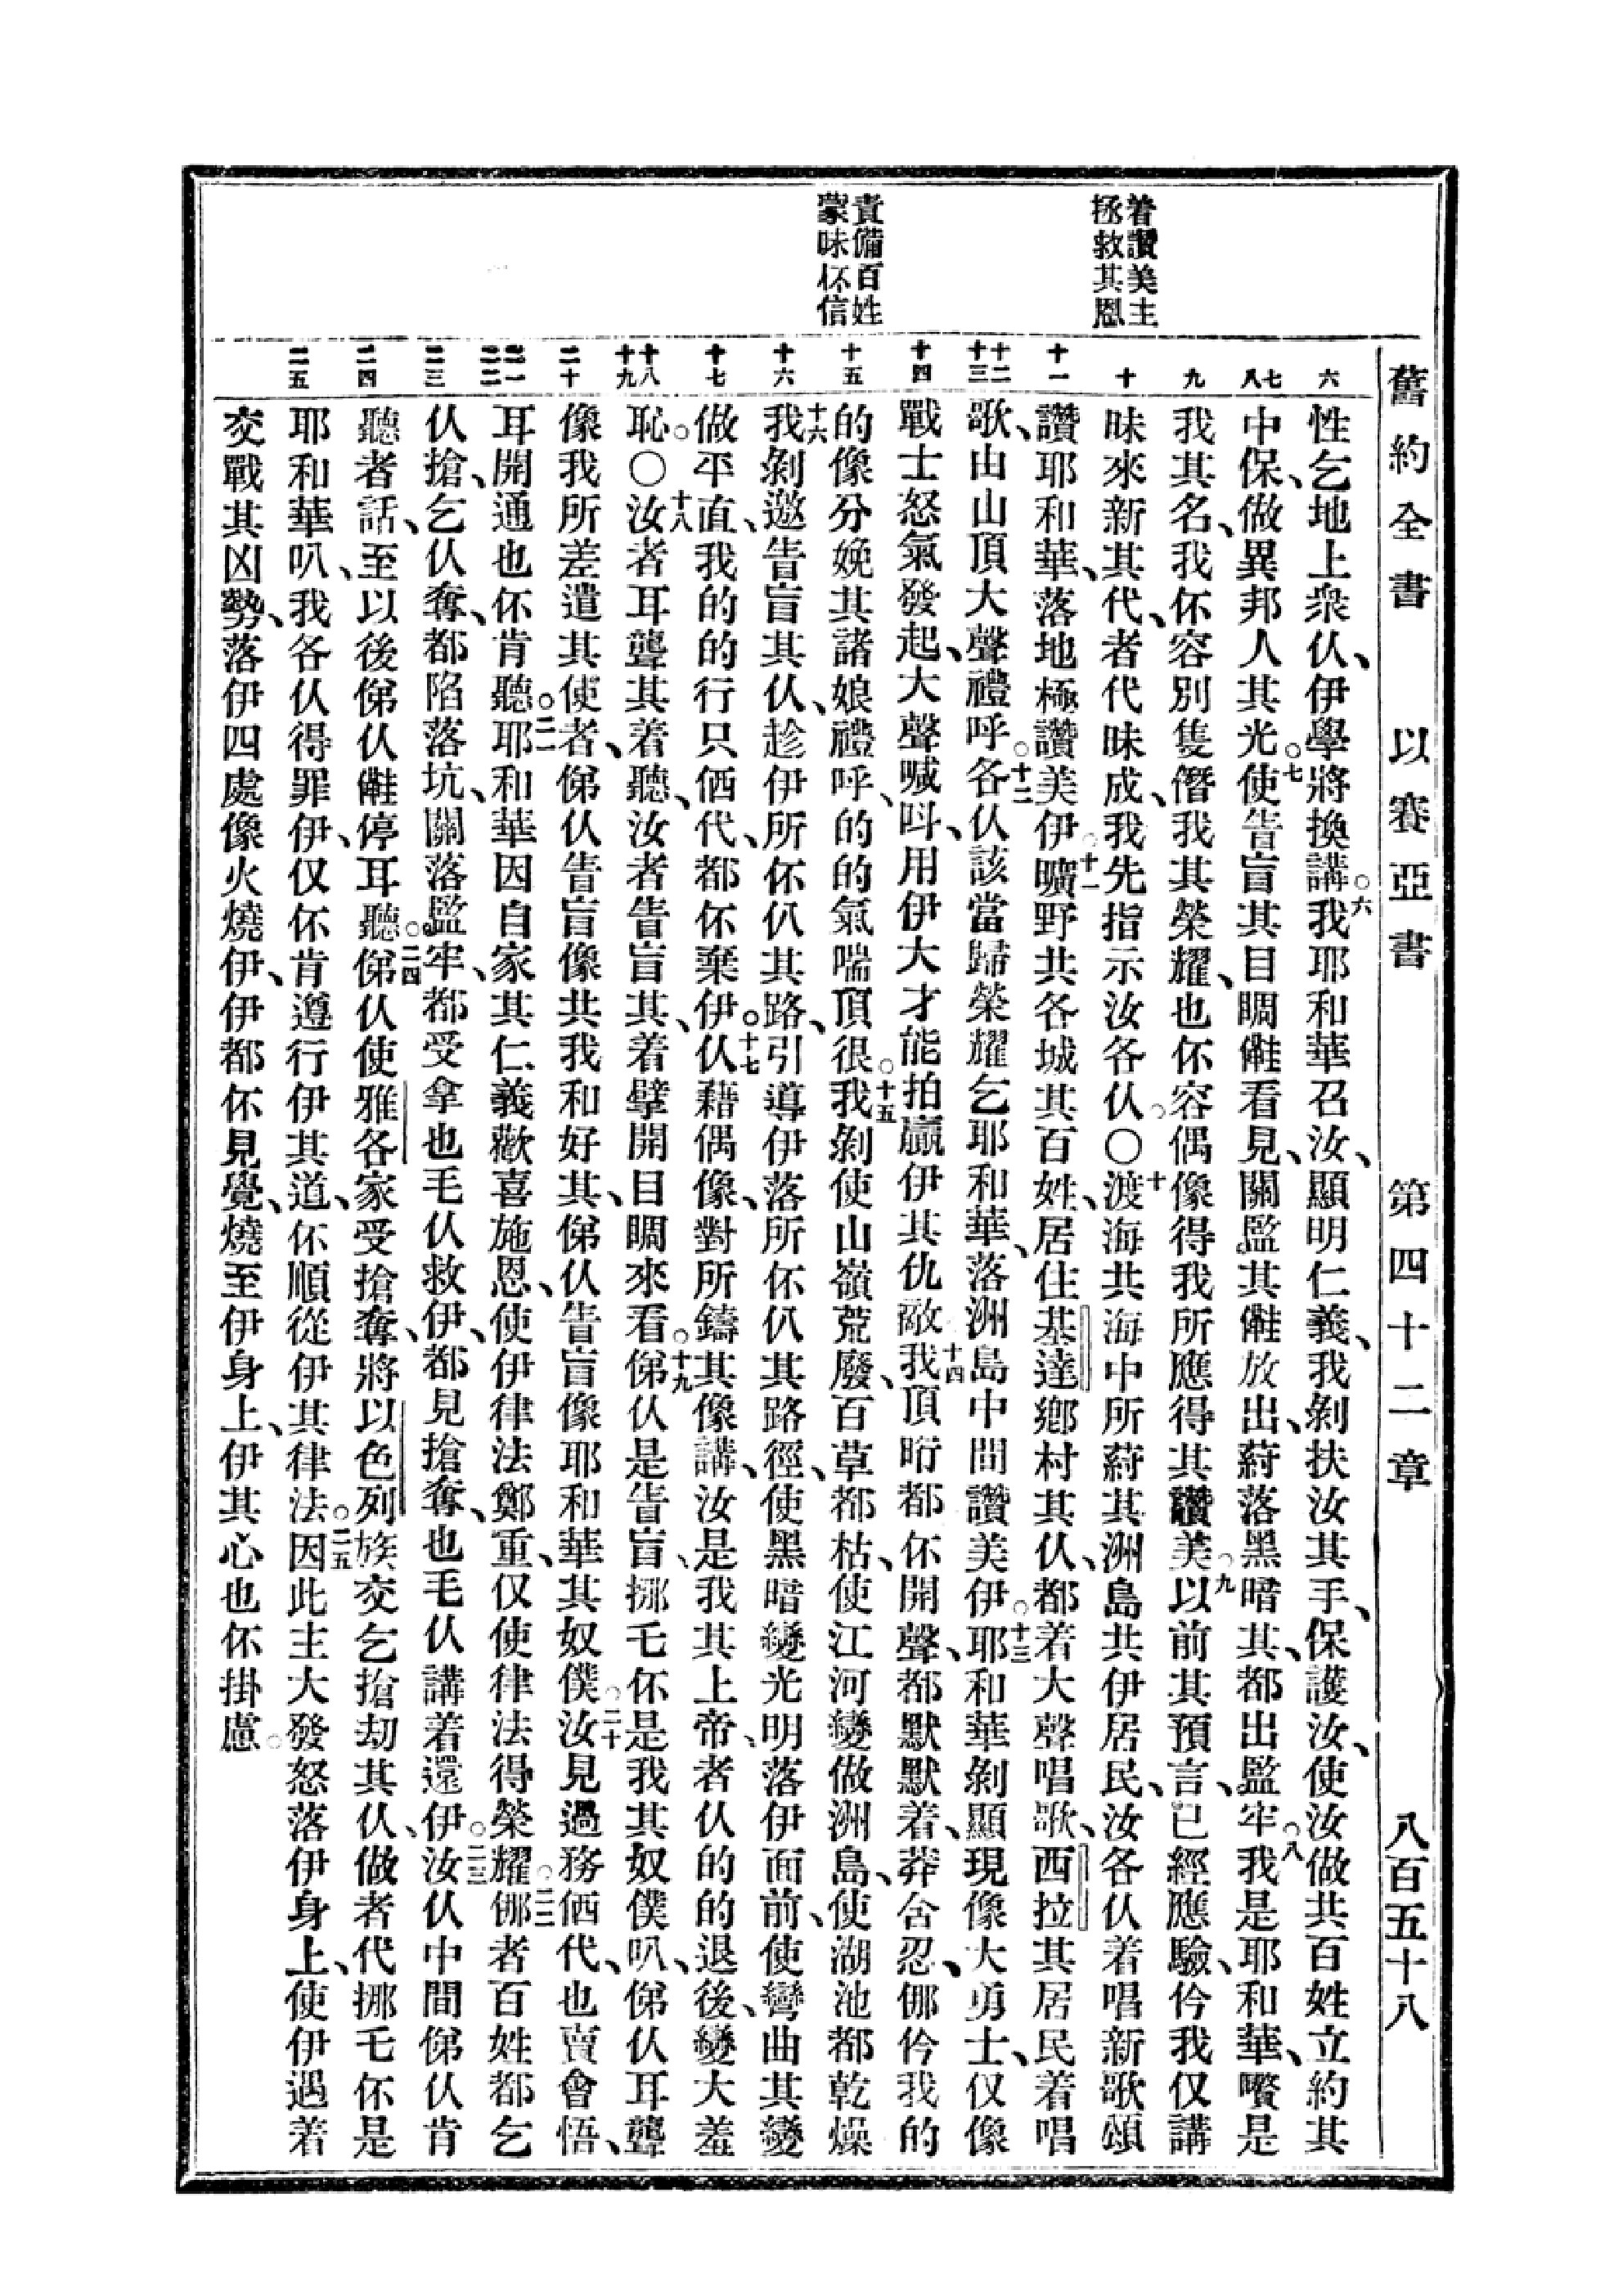 舊約全書 以賽亞書 第四十二章 八百五十八
着讚美主
拯救其恩
責備百姓
蒙昧伓信
六
七
八
九
十
十一
十二
十三
十四
十五
十六
十七
十八
十九
二十
二一
二二
二三
二四
二五
性乞地上衆仈、伊學將換講。六我耶和華召汝、顯明仁義、我剝扶汝其手、保護汝、使汝做共百姓立約其
中保、做異邦人其光。七使眚盲其目瞷𣍐看見、關監其𣍐放出、蔚落黑暗其、都出監牢。八我是耶和華、嚽是
我其名、我伓容別隻僭我其榮耀、也伓容偶像得我所應得其讚美。九以前其預言、已經應驗、仱我仅講
昧來新其代、者代昧成、我先指示汝各仈。〇十渡海共海中所蔚其洲島共伊居民、汝各仈着唱新歌頌
讚耶和華、落地極讚美伊。十一曠野共各城其百姓、居住基達鄕村其仈、都着大聲唱歌、西拉其居民着唱
歌、由山頂大聲禮呼。十二各仈該當歸榮耀乞耶和華、落洲島中間讚美伊。十三耶和華剝顯現像大勇士、仅像
戰士怒氣發起、大聲喊呌、用伊大才能拍贏伊其仇敵。十四我頂昉都伓開聲、都默默着、莽含忍、𠁞仱我的
的像分娩其諸娘禮呼、的的氣喘頂很。十五我剝使山嶺荒廢、百草都枯、使江河變做洲島、使湖池都乾燥
十六我剝邀眚盲其仈、趁伊所伓仈其路、引導伊落所伓仈其路徑、使黑暗變光明落伊面前、使彎曲其變
做平直、我的的行只𠲥代、都伓棄伊。十七仈藉偶像、對所鑄其像講、汝是我其上帝、者仈的的退後、變大羞
恥。〇十八汝者耳聾其着聽、汝者眚盲其、着擘開目瞷來看。十九俤仈是眚盲、挪乇伓是我其奴僕叭、俤仈耳聾、
像我所差遣其使者、俤仈眚盲像共我和好其、俤仈眚盲像耶和華其奴僕。二十汝見過務𠲥代、也賣會悟、
耳開通也伓肯聽。二一耶和華因自家其仁義歡喜施恩、使伊律法鄭重、仅使律法得榮耀。二二𠁞者百姓都乞
仈搶、乞仈奪、都陷落坑、關落監牢、都受拿也毛仈救伊、都見搶奪、也毛仈講着還伊。二三汝仈中間俤仈肯
聽者話、至以後俤仈𣍐停耳聽。二四俤仈使雅各家受搶奪、將以色列族交乞搶刼其仈、做者代挪乇伓是
耶和華叭、我各仈得罪伊、仅伓肯遵行伊其道、伓順從伊其律法。二五因此主大發怒落伊身上、使伊遇着
交戰其凶勢、落伊四處像火燒伊、伊都伓見覺、燒至伊身上、伊其心也伓掛慮。